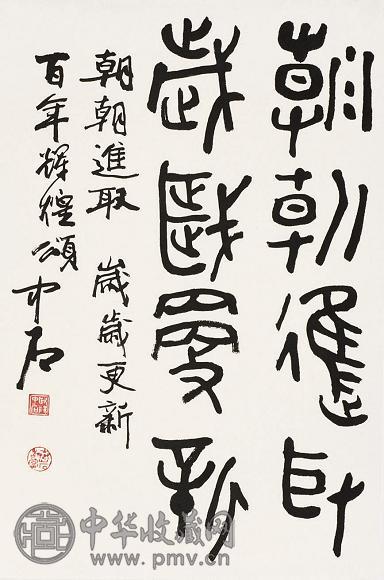 朝朝進取
歲歲更新
朝朝進取 歲歲更新
百年輝煌頌 中石
中华收藏网
www.pmv.cn